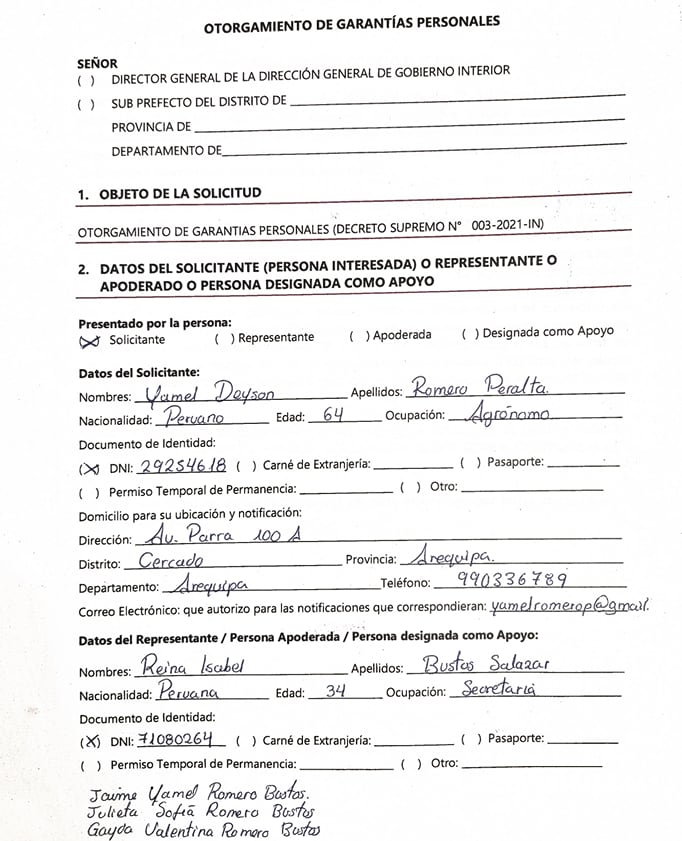 OTORGAMIENTO DE GARANTÍAS PERSONALES
SEÑOR
( ) DIRECTOR GENERAL DE LA DIRECCIÓN GENERAL DE GOBIERNO INTERIOR
( ) SUB PREFECTO DEL DISTRITO DE
PROVINCIA DE
DEPARTAMENTO DE
1. OBJETO DE LA SOLICITUD
OTORGAMIENTO DE GARANTIAS PERSONALES (DECRETO SUPREMO N° 003-2021-IN)
2. DATOS DEL SOLICITANTE (PERSONA INTERESADA) O REPRESENTANTE O
APODERADO O PERSONA DESIGNADA COMO APOYO
Presentado por la persona:
(X) Solicitante ( ) Representante ( ) Apoderada ( ) Designada como Apoyo
Datos del Solicitante:
Nombres: Yamel Deyson Apellidos: Romero Peralta.
Nacionalidad: Peruano Edad: 64 Ocupación: Agrónomo
Documento de Identidad:
(X) DNI: 29254618 ( ) Carné de Extranjería: ( ) Pasaporte:
( ) Permiso Temporal de Permanencia: ( ) Otro:
Domicilio para su ubicación y notificación:
Dirección: Av. Parra 100 A
Distrito: Cercado Provincia: Arequipa.
Departamento: Arequipa Teléfono: 990336789
Correo Electrónico: que autorizo para las notificaciones que correspondieran: yamelromerop@gmail.
Datos del Representante / Persona Apoderada / Persona designada como Apoyo:
Nombres: Reina Isabel Apellidos: Bustos Salazar
Nacionalidad: Peruana Edad: 34 Ocupación: Secretaria
Documento de Identidad:
(X) DNI: 71080264 ( ) Carné de Extranjería: ( ) Pasaporte:
( ) Permiso Temporal de Permanencia: ( ) Otro:
Jaime Yamel Romero Bustos.
Julieta Sofía Romero Bustos
Gayda Valentina Romero Bustos